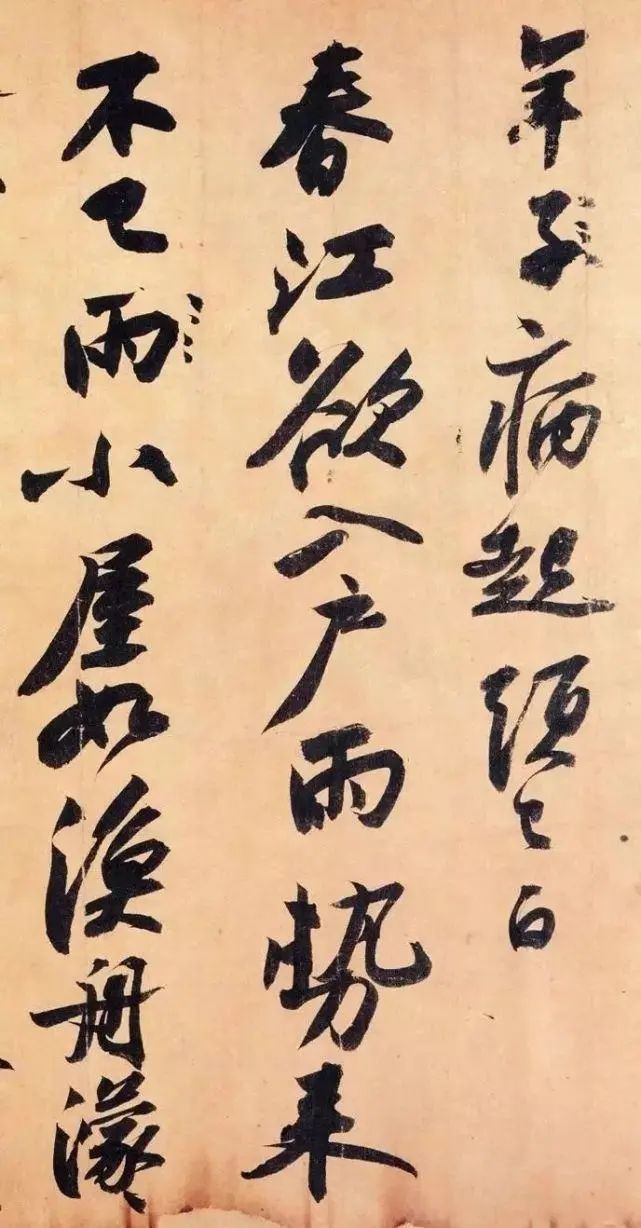 年子病起須已白
春江欲入户雨勢來
不已雨小屋如漁舟濛〻